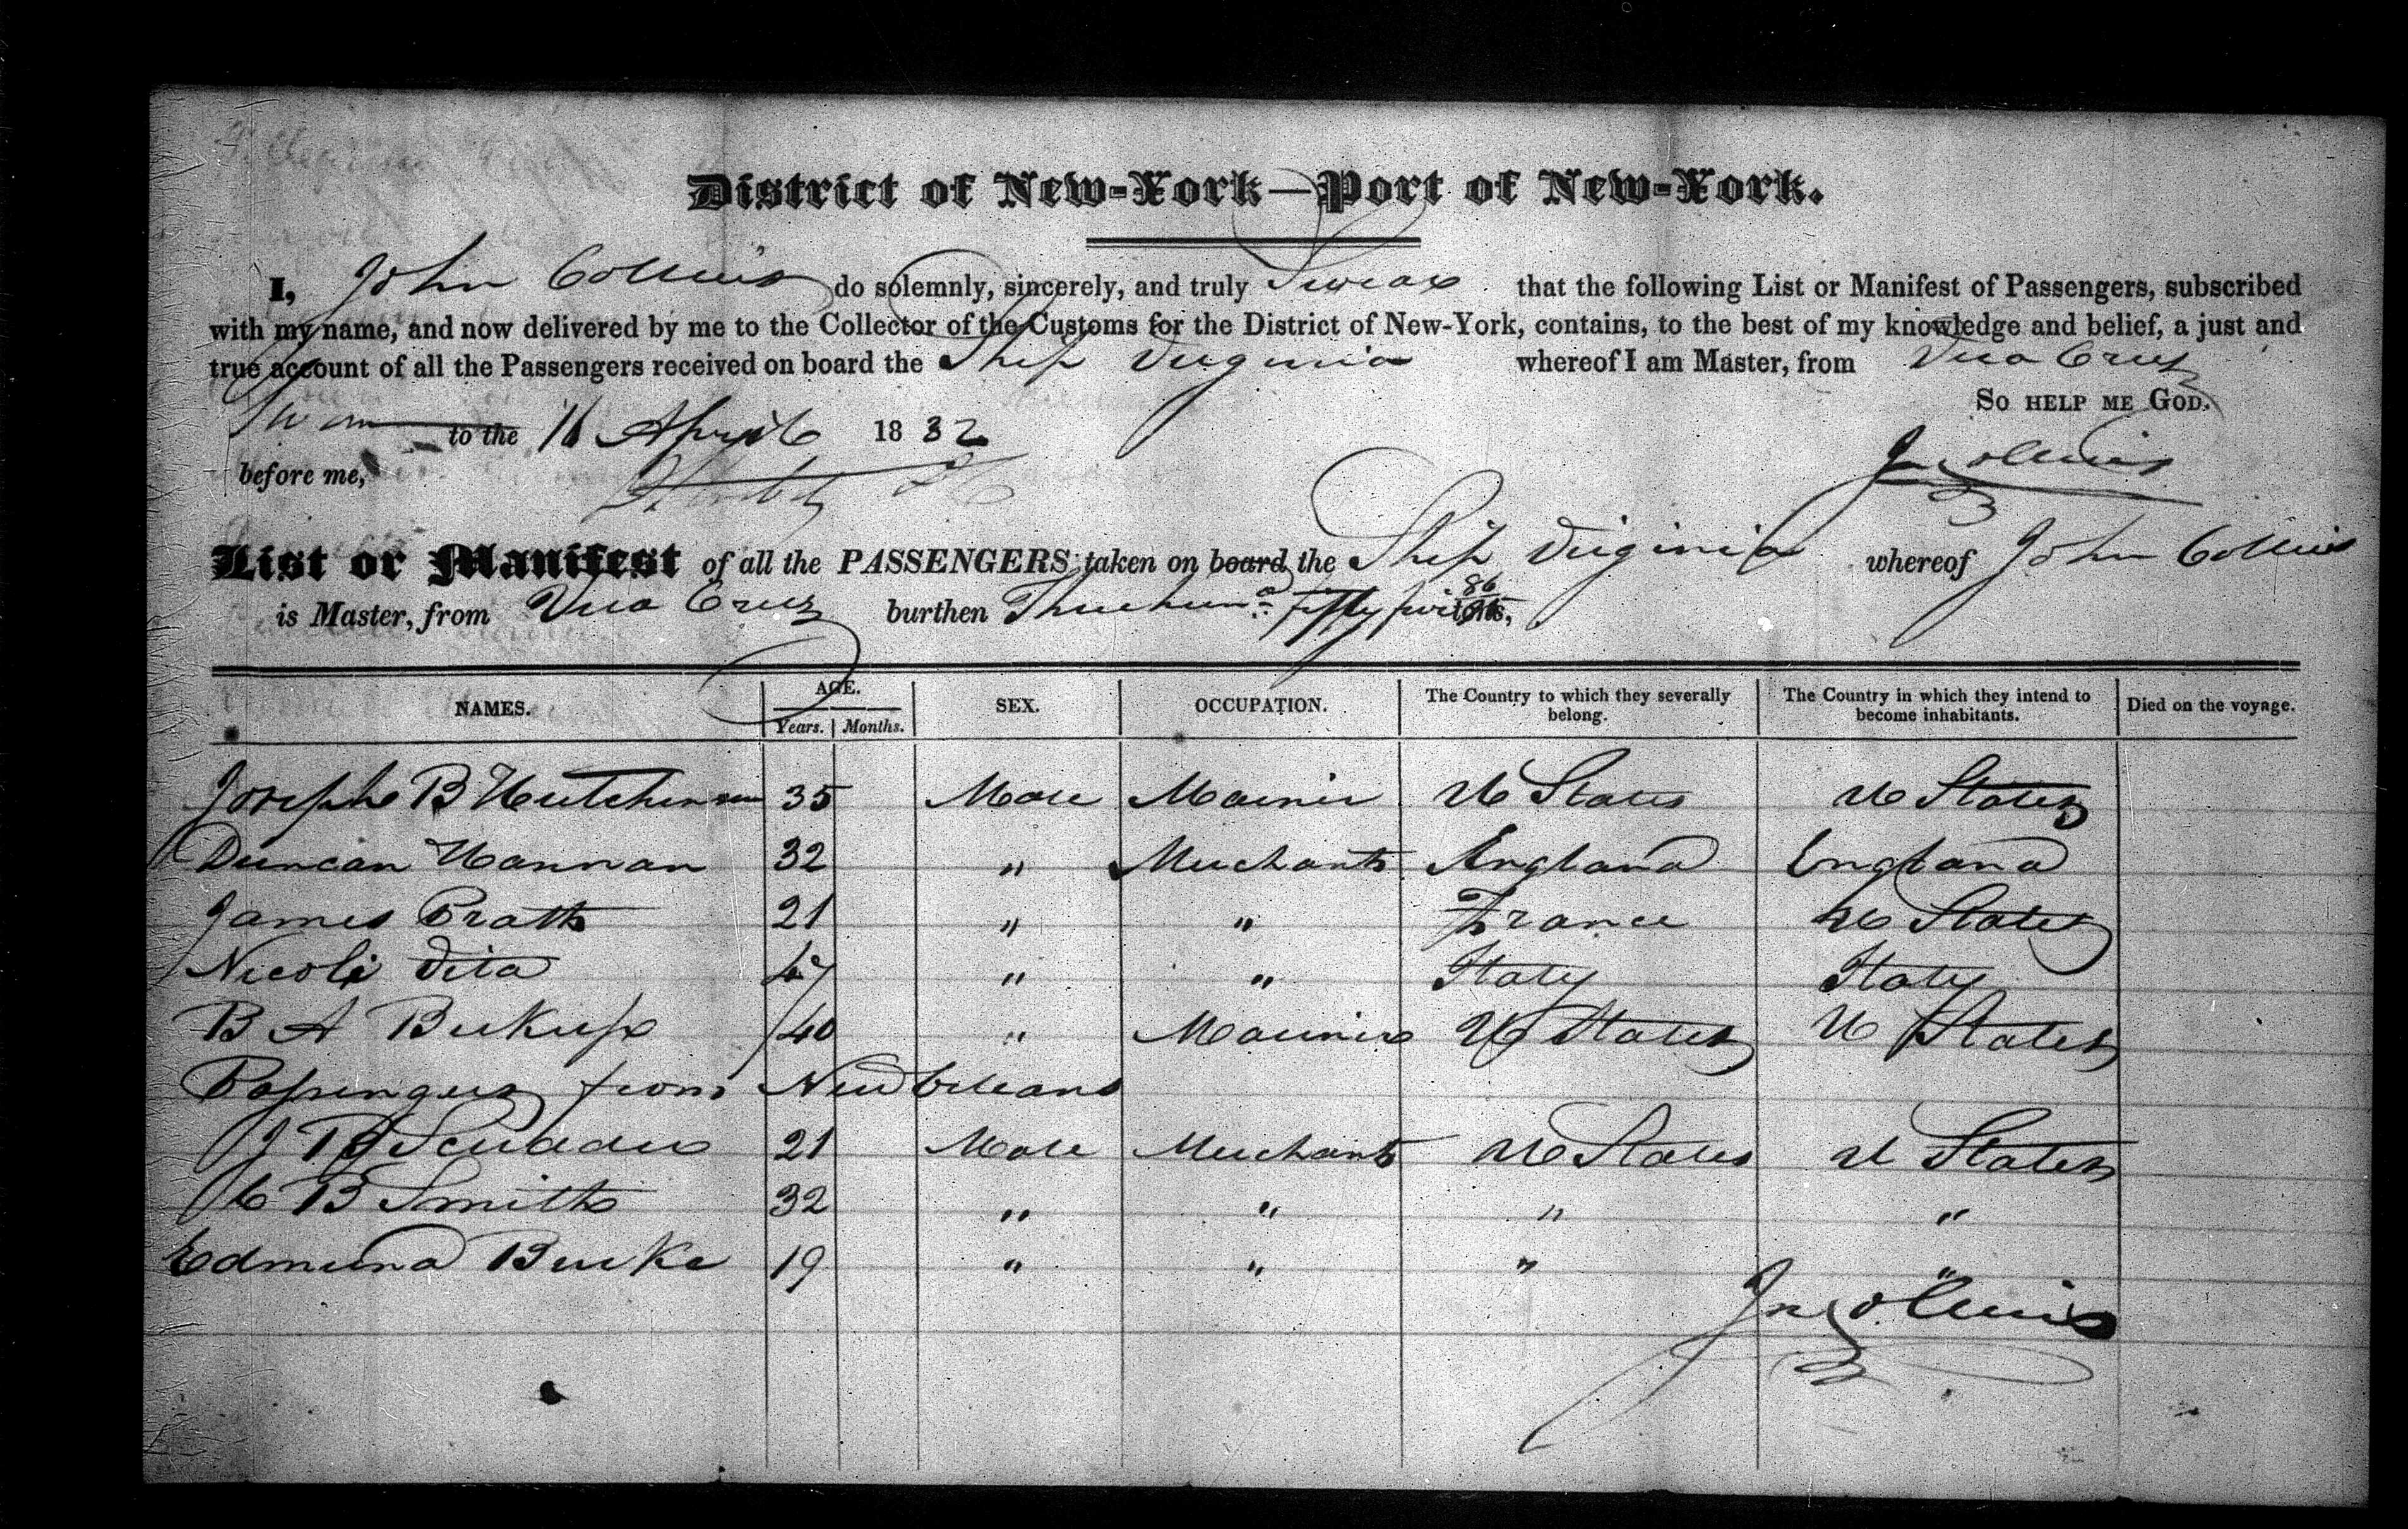 District of New-York—Port of New-York.
I, John Collins do solemnly, sincerely, and truly Swear that the following List or Manifest of Passengers, subscribed
with my name, and now delivered by me to the Collector of the Customs for the District of New-York, contains, to the best of my knowledge and belief, a just and
true account of all the Passengers received on board the Ship Virginia whereof I am Master, from Vera Cruz
So help me God.
Sworn to the 16 April 1832
Jn Collins
before me,
List or Manifest of all the PASSENGERS taken on board the Ship Virginia whereof John Collins
is Master, from Vera Cruz burthen Three hund fifty 86/95 tons,
NAMES. AGE. Years. Months. SEX. OCCUPATION. The Country to which they severally belong. The Country in which they intend to become inhabitants. Died on the voyage.
Joseph B Hutchinson 35 Male Marinir U States U States
Duncan Hannan 32 " Merchant England England
James Prath 21 " " France U States
Nicoli Vita 47 " " Italy Italy
B A 40 " Marinir U States U States
Passengers from New Orleans
J Scudder 21 Male Merchant U States U States
C B Smith 32 " " " "
Edmund Burke 19 " " " "
Jn Collins